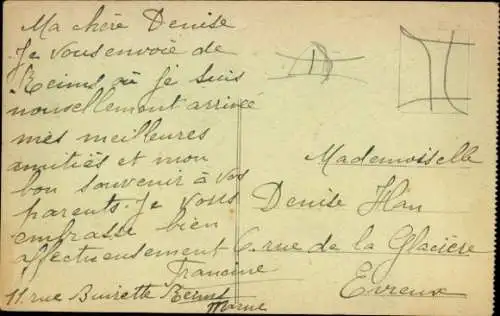 Ma chère Denise
Je vous envoie de
Reims où je suis
nouvellement arrivée
mes meilleures
amitiés et mon
bon souvenir à vos
parents. Je vous
embrasse bien
affectueusement
Francine
11. rue Buirette Reims
Marne
Mademoiselle
Denise Han
6. rue de la Glacière
Evreux